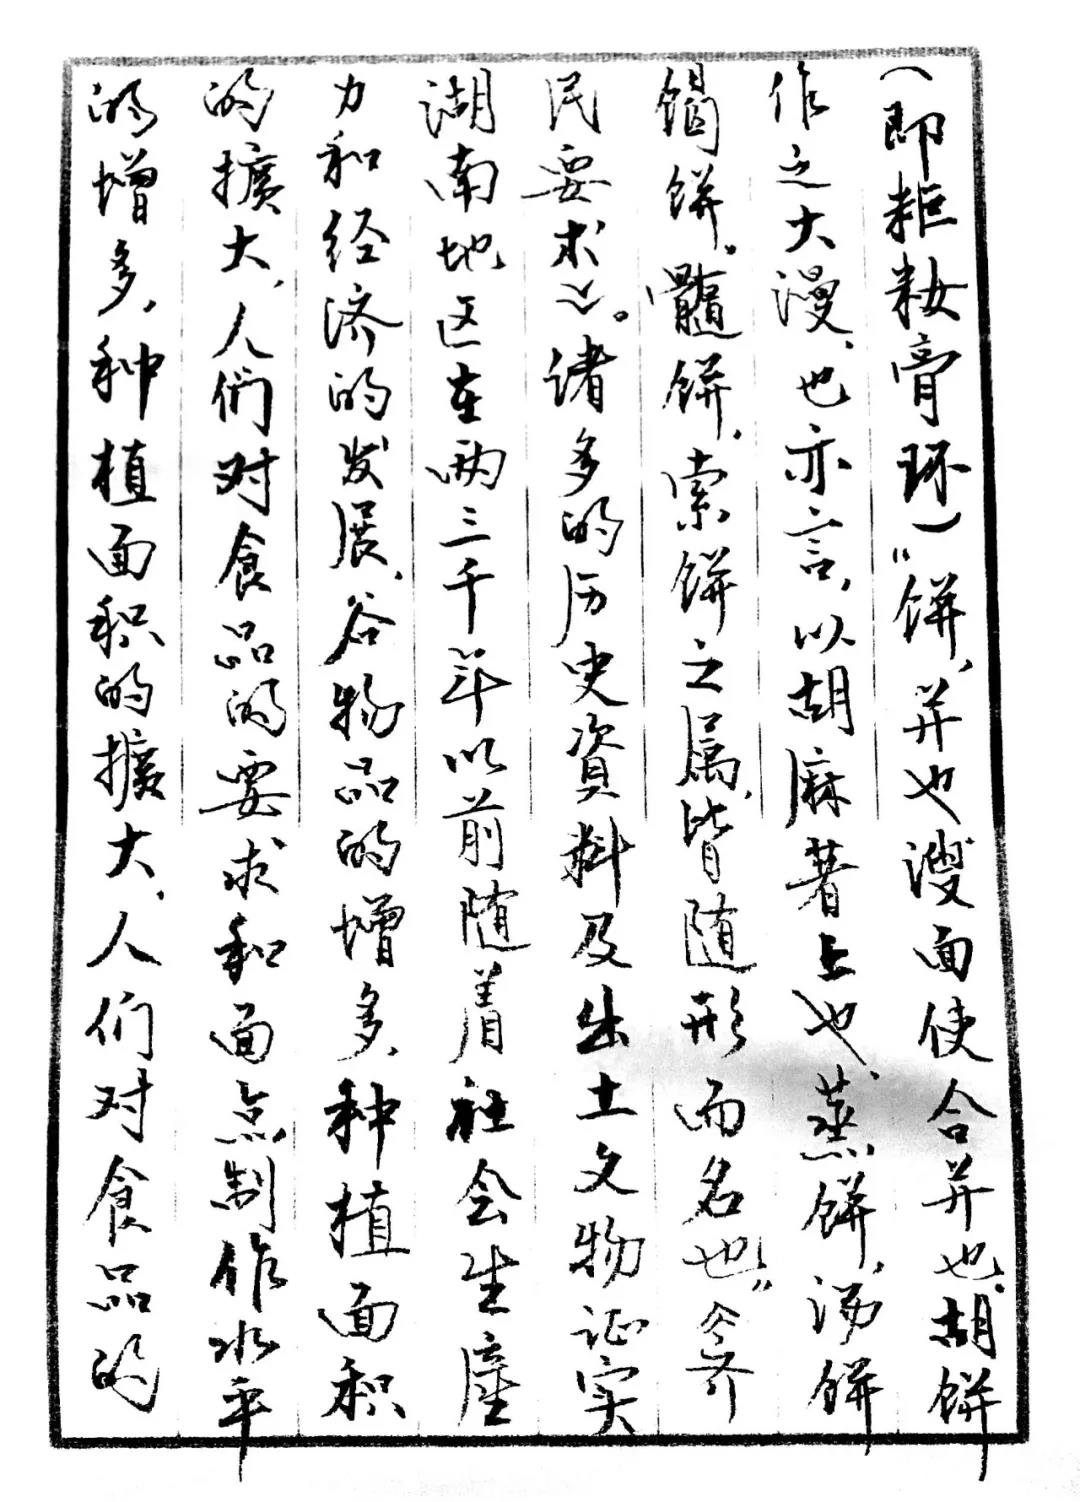 （即粔籹膏环）“餅，并也溲面使合并也，胡餅
作之大漫，也亦言，以胡麻著上也，蒸餅，湯餅
餲餅，髓餅，索餅之属，皆随形而名也”《齐
民要求》。诸多的历史資料及出土文物证实
湖南地区在两三千年以前随着社会生產
力和经济的发展，谷物品的增多，种植面积
的擴大，人们对食品的要求和面点制作水平
的增多，种植面积的擴大，人们对食品的